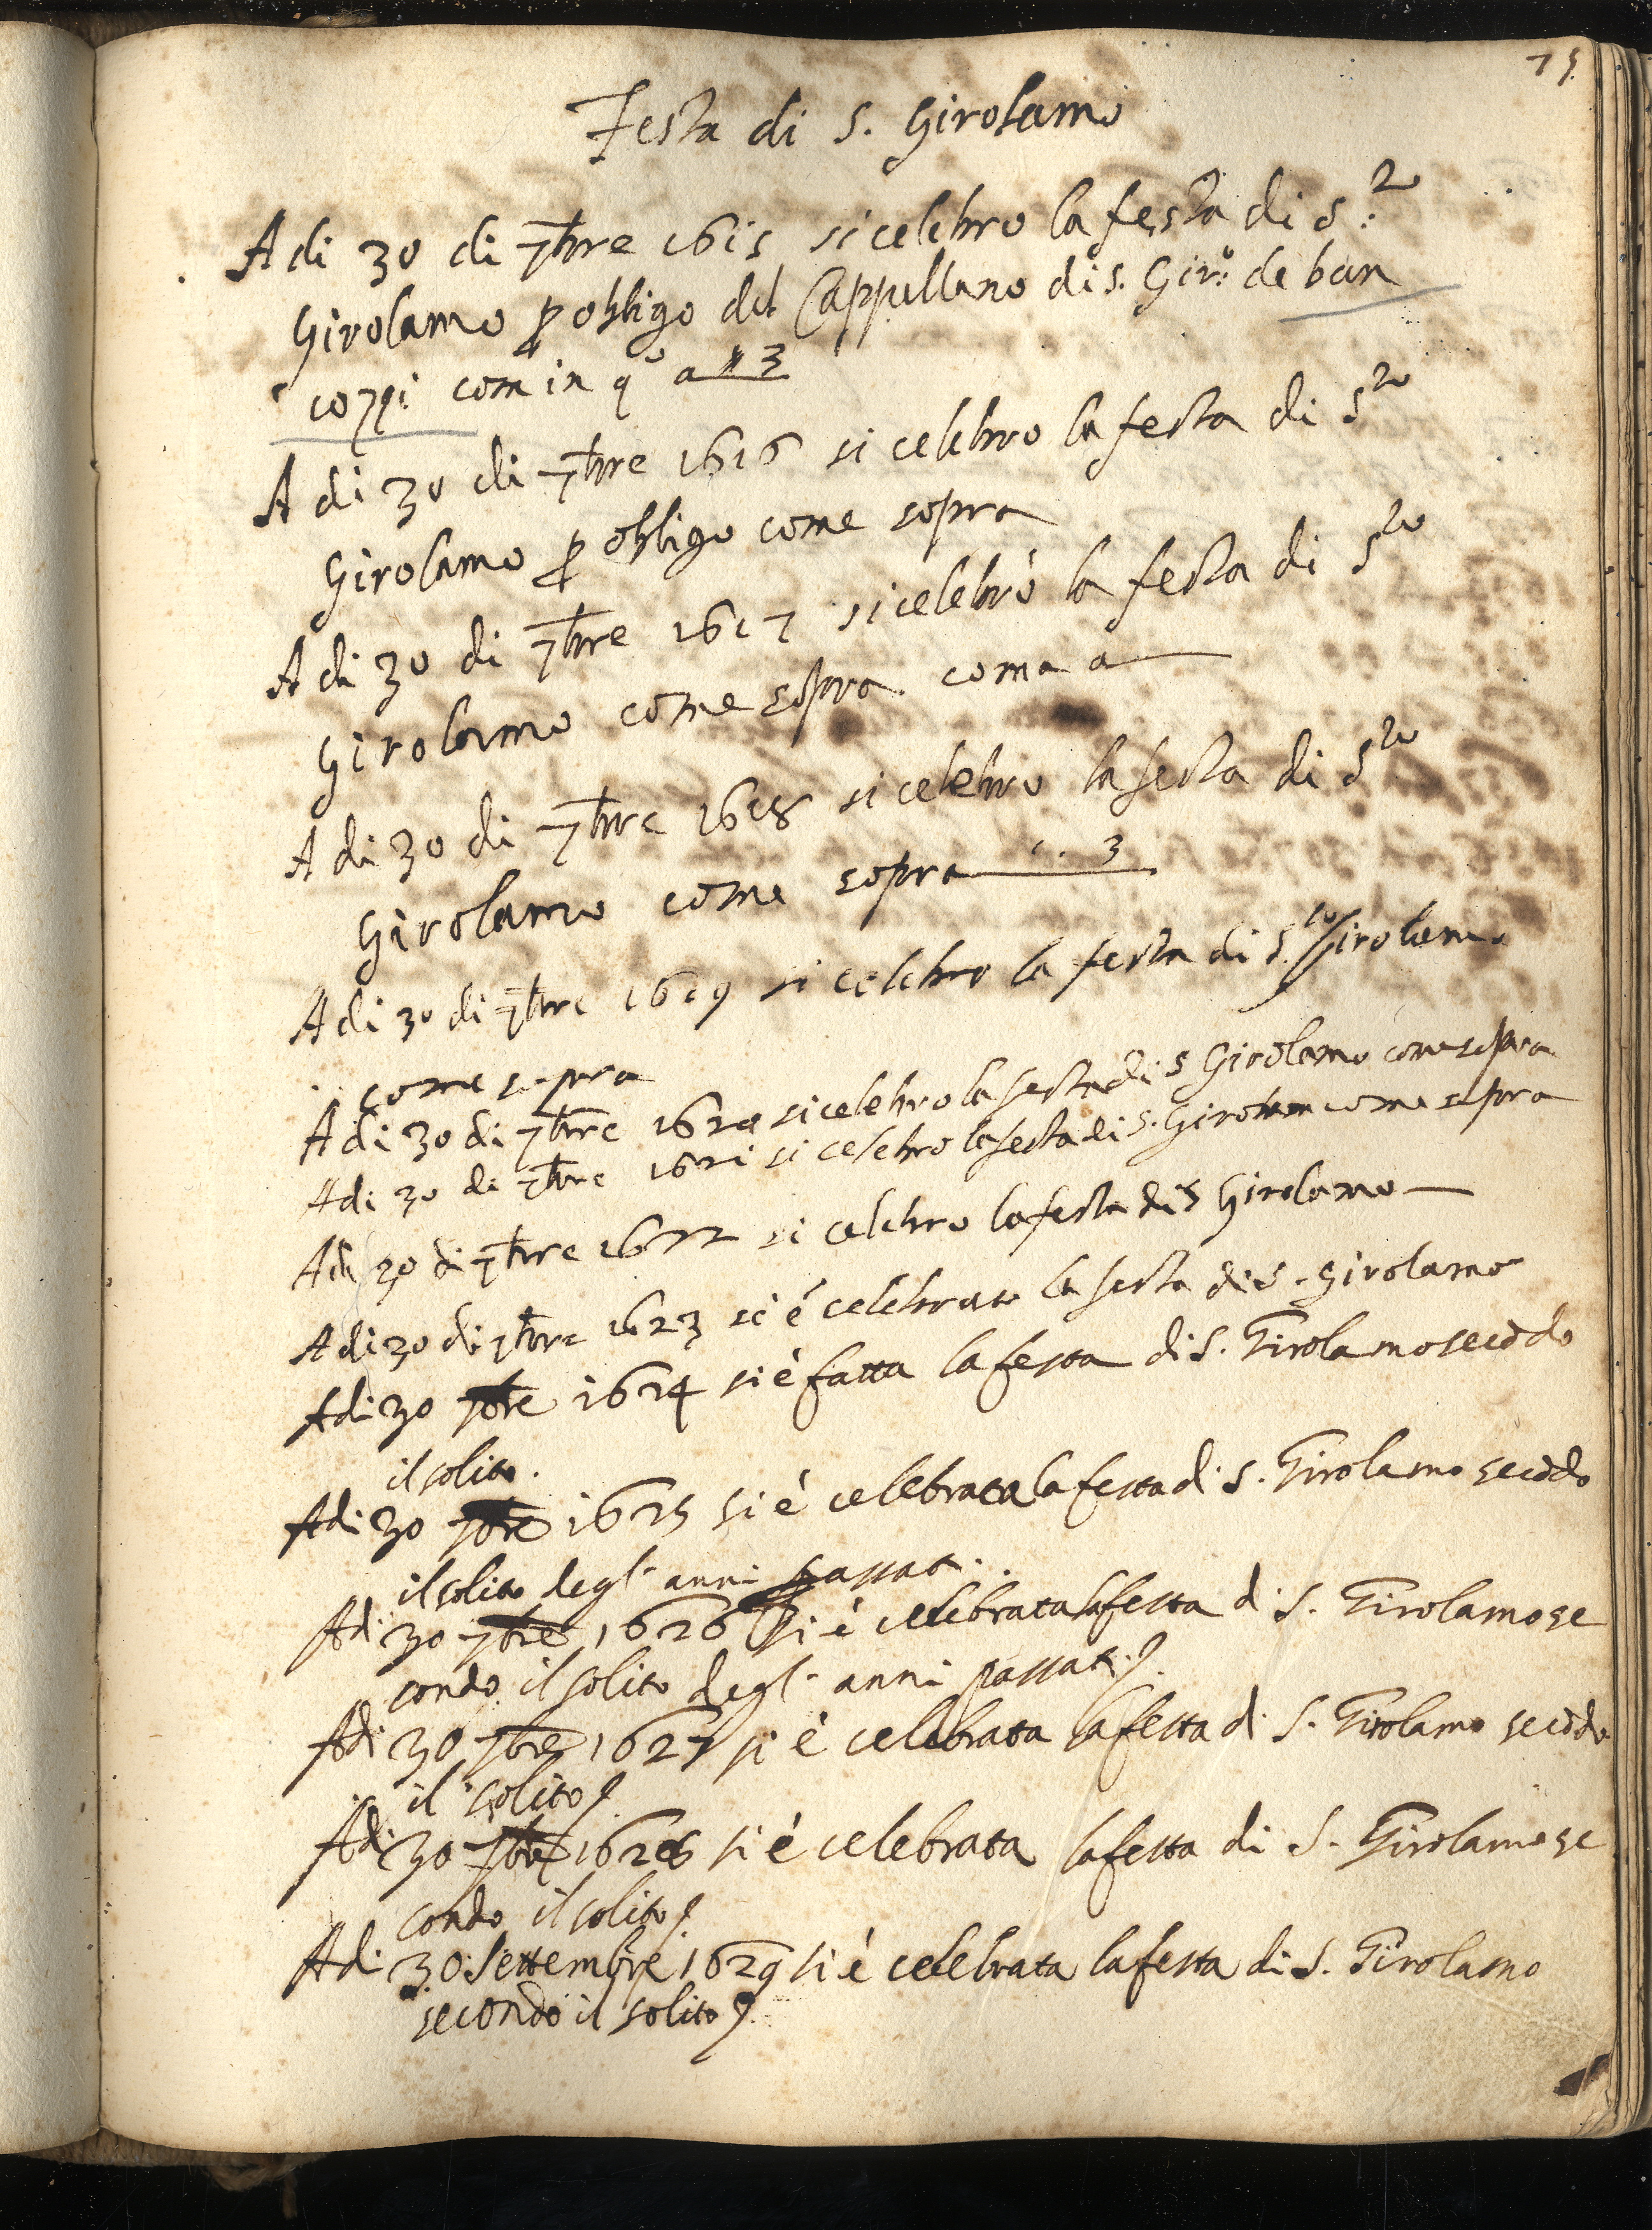 75
Festa di S. Girolamo
A di 30 di 7bre 1615 si celebro la festa di S.to
Girolamo p obligo del Cappellano di S. Gir.o de ban
cozzi com in q.o a 3
A di 30 di 7bre 1616 si celebro la festa di S.to
Girolamo p obligo come sopra
A di 30 di 7bre 1617 si celebrò la festa di S.to
Girolamo come sopra com a
A di 30 di 7bre 1618 si celebro la festa di S.to
Girolamo come sopra 3
A di 30 di 7bre 1619 si celebro la festa di S.to Girolamo
come sopra
A di 30 di 7bre 1620 si celebro la festa di S Girolamo come sopra
A di 30 di 7bre 1621 si celebro la festa di S. Girolamo come sopra
A di 30 di 7bre 1622 si celebro la festa di S Girolamo
A di 30 di 7bre 1623 si é celebrato la festa di S. Girolamo
Adi 30 7bre 1624 si è fatta la festa di S. Girolamo secōdo
il solito.
Adi 30 7bre 1625 si è celebrata la festa di S. Girolamo secōdo
il solito degl' anni passati.
Adi 30 7bre 1626 si è celebrata la festa di S. Girolamo se
condo il solito degl' anni passati.
Adi 30 7bre 1627 si è celebrata la festa di S. Girolamo secōdo
il solito
Adi 30 7bre 1628 si è celebrata la festa di S. Girolamo se
condo il solito
Adi 30 Settembre 1629 si è celebrata la festa di S. Girolamo
secondo il solito